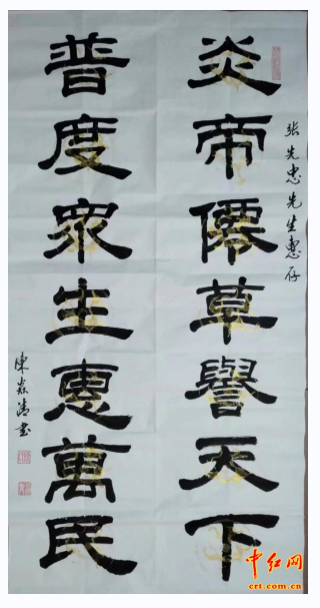 張先忠先生惠存
炎帝僊草譽天下
普度眾生惠萬民
陳焱濤書
中红网
crt.com.cn